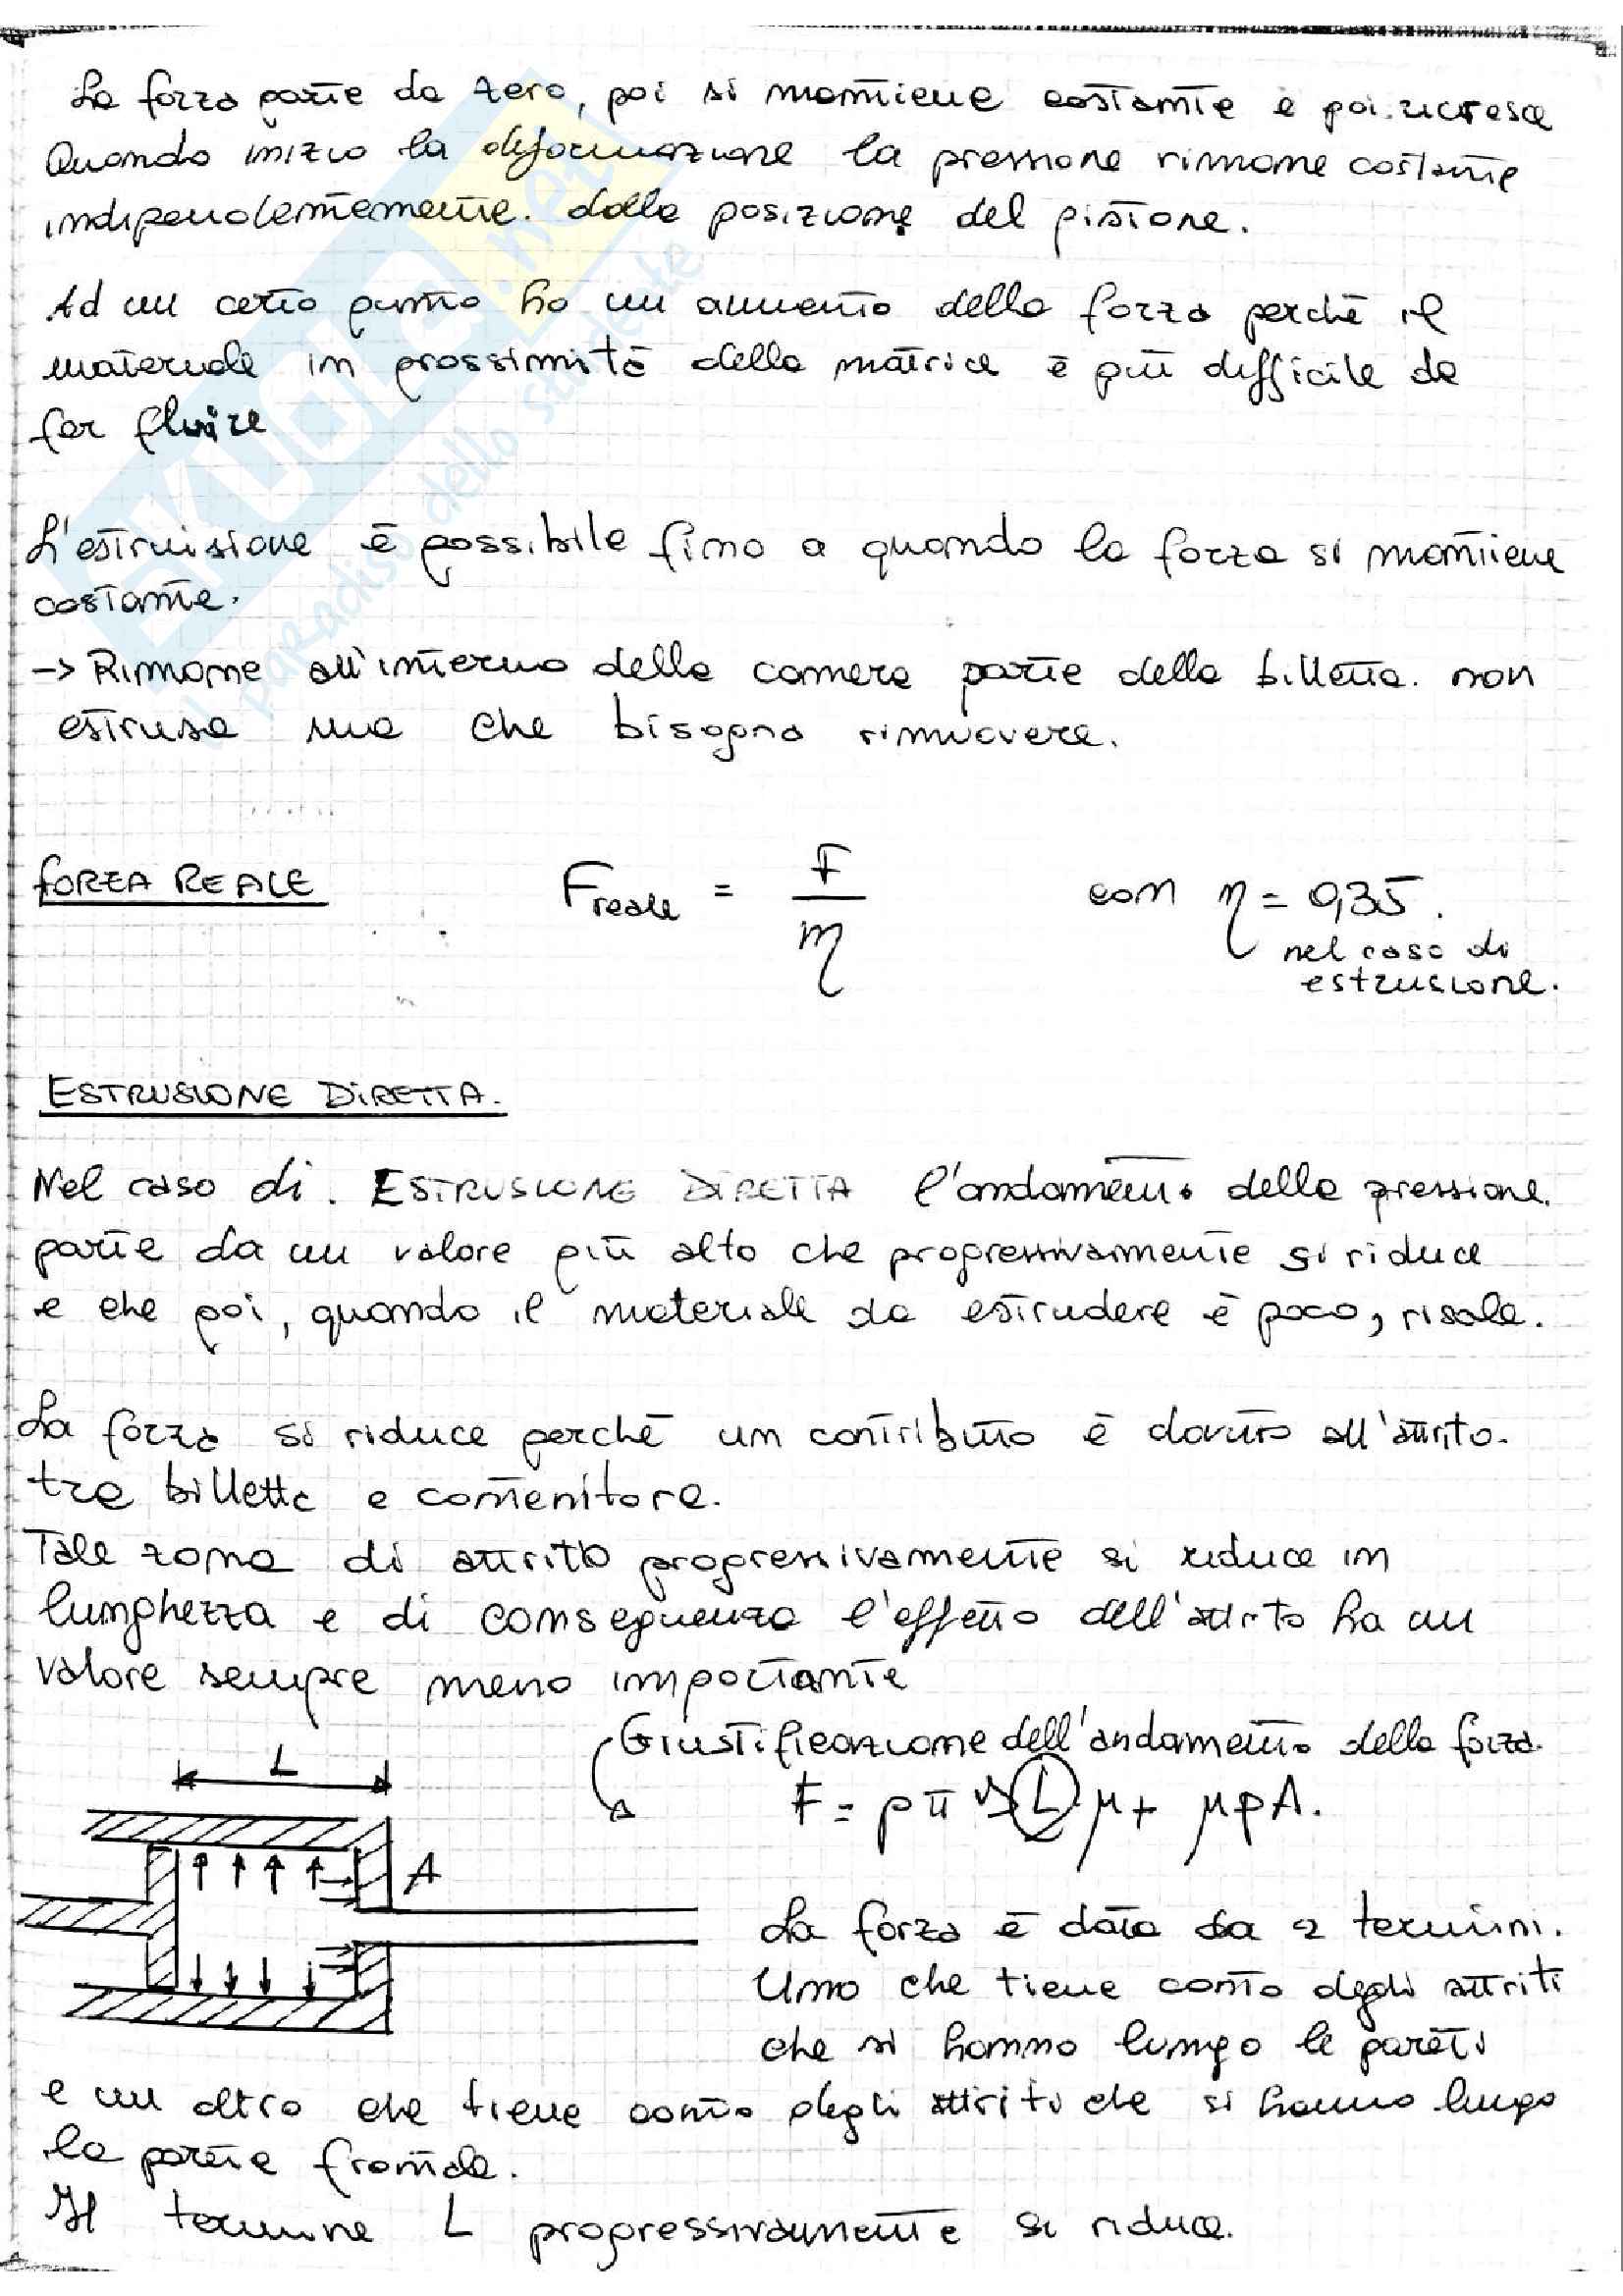 La forza parte da zero, poi si mantiene costante e poi ricresce
Quando inizio la deformazione la pressione rimane costante
indipendentemente dalla posizione del pistone.
Ad un certo punto ho un aumento della forza perchè il
materiale in prossimità della matrice è più difficile da
far fluire
L'estruisione è possibile fino a quando la forza si mantiene
costante.
-> Rimane all'interno della camera parte della billetta non
estrusa ma che bisogna rimuovere.
FORZA REALE F reale = F / η con η = 0,35.
nel caso di
estrusione.
ESTRUSIONE DIRETTA.
Nel caso di ESTRUSIONE DIRETTA l'andamento della pressione
parte da un valore più alto che progressivamente si riduce
e che poi, quando il materiale da estrudere è poco, risale.
La forza si riduce perchè un contributo è dovuto all'attrito
tra billetta e contenitore.
Tale zona di attrito progressivamente si riduce in
lunghezza e di conseguenza l'effetto dell'attrito ha un
valore sempre meno importante
Giustificazione dell'andamento della forza
L
F = pπ L μ + μpA.
A
La forza è data da 2 termini.
Uno che tiene conto degli attriti
che si hanno lungo le pareti
e un altro che tiene conto degli attriti che si hanno lungo
la parete frontale.
Il termine L progressivamente si riduce.
SKUOLA.net
il paradiso dello studente